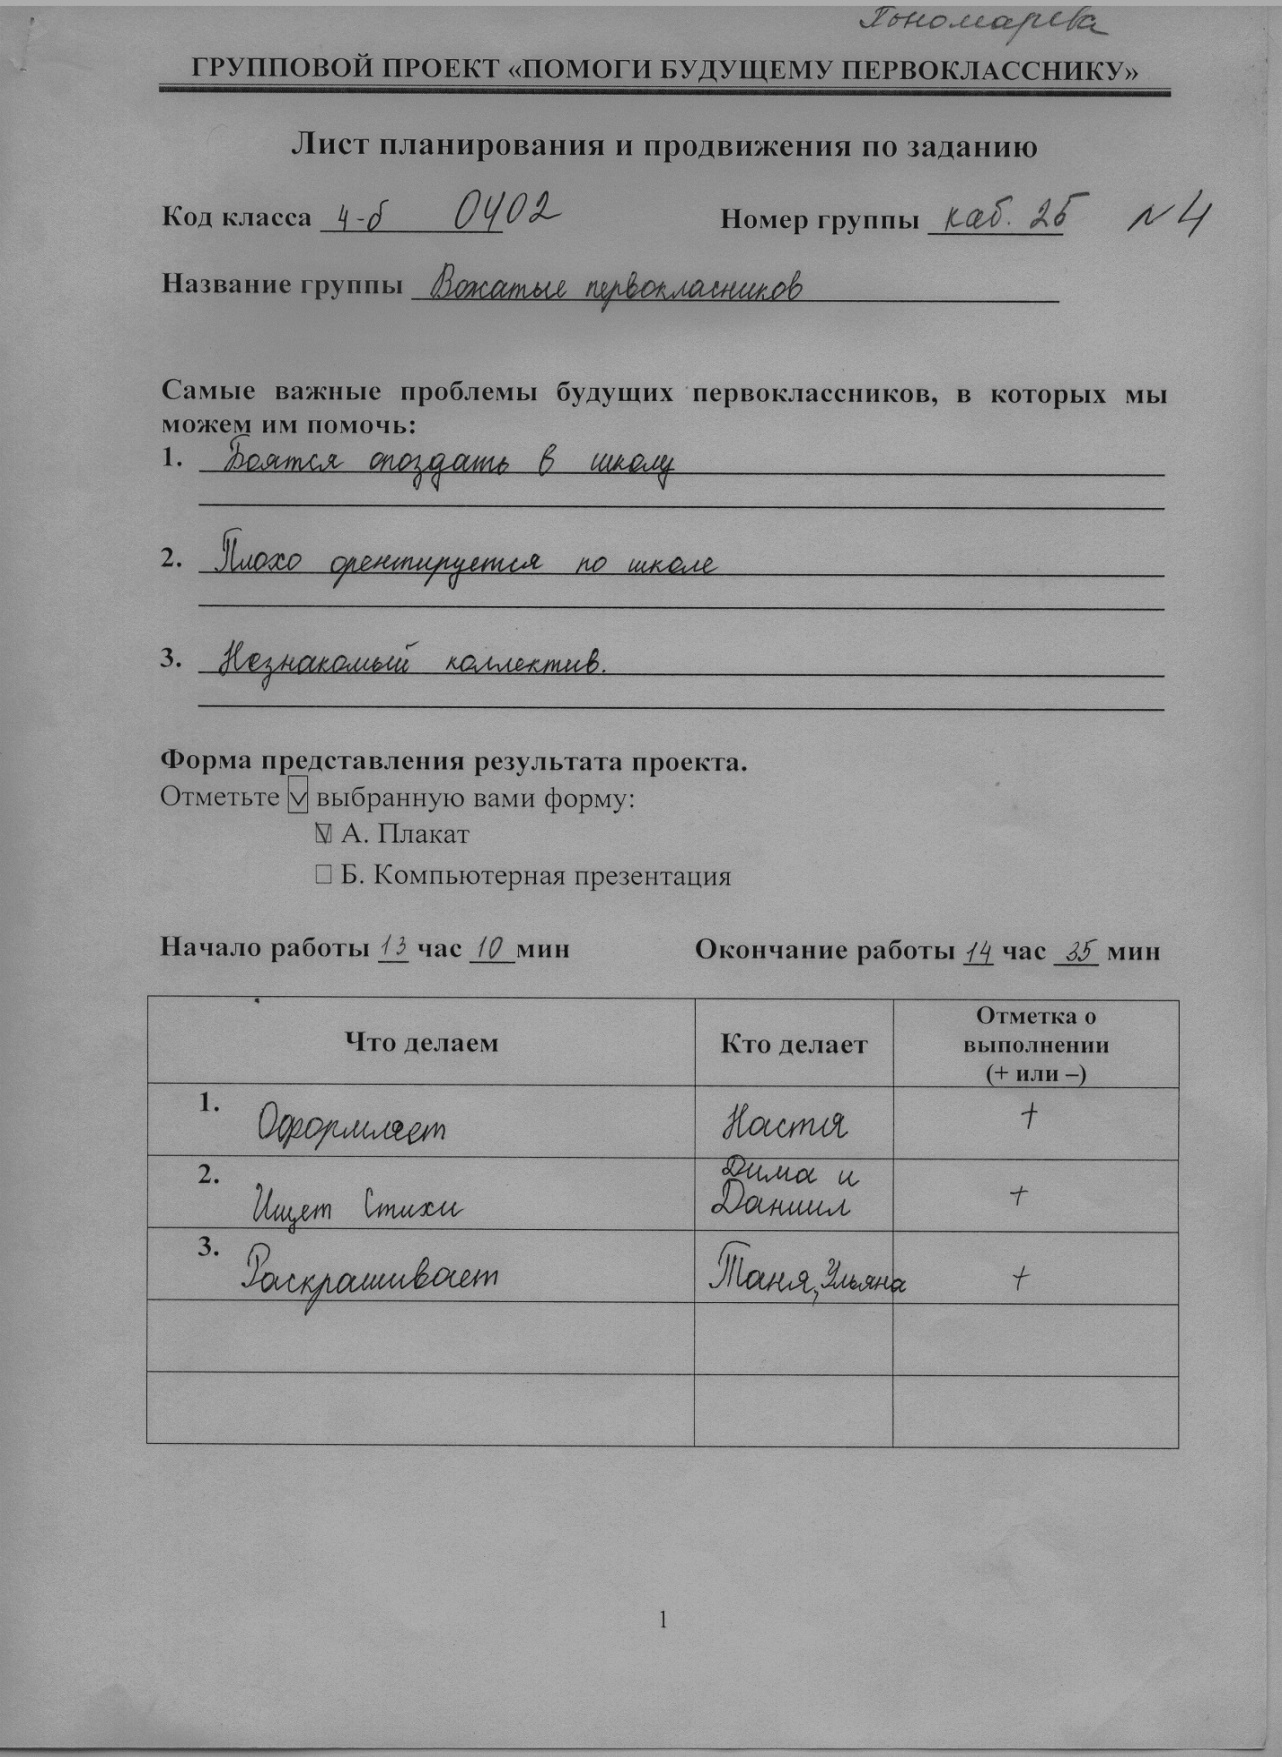 Пономарева
ГРУППОВОЙ ПРОЕКТ «ПОМОГИ БУДУЩЕМУ ПЕРВОКЛАССНИКУ»
Лист планирования и продвижения по заданию
Код класса 4-б 0402 Номер группы каб. 25 №4
Название группы Вожатые первокласников
Самые важные проблемы будущих первоклассников, в которых мы
можем им помочь:
1. Боятся опоздать в школу
2. Плохо орентируется по школе
3. Незнакомый коллектив.
Форма представления результата проекта.
Отметьте выбранную вами форму:
А. Плакат
Б. Компьютерная презентация
Начало работы 13 час 10 мин Окончание работы 14 час 35 мин
Что делаем Кто делает Отметка о
выполнении
(+ или –)
1. Оформляет Настя +
2. Ищет Стихи Дима и
Даниил +
3. Раскрашивает Таня, Ульяна +
1